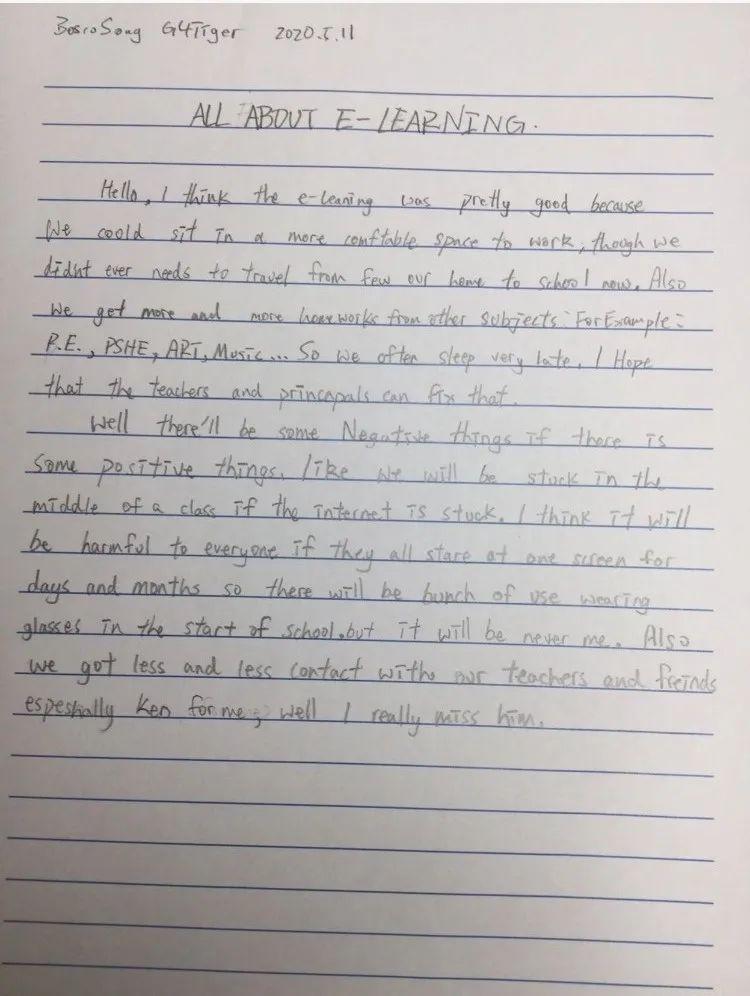 BosroSong G4Tiger 2020.5.11
ALL ABOUT E-LEARNING.
Hello, I think the e-leaning was pretty good because
We coold sit in a more comftable space to work, though we
didnt ever needs to travel from few our home to school now. Also
we get more and more homeworks from other subjects: For Example:
P.E., PSHE, ART, Music... So we often sleep very late. I Hope
that the teachers and princapals can fix that.
Well there'll be some Negative things if there is
some positive things, like we will be stuck in the
middle of a class if the internet is stuck. I think it will
be harmful to everyone if they all stare at one screen for
days and months so there will be bunch of use wearing
glasses in the start of school. but it will be never me. Also
we got less and less contact withs our teachers and freinds
espeshally Ken for me; well I really miss him.